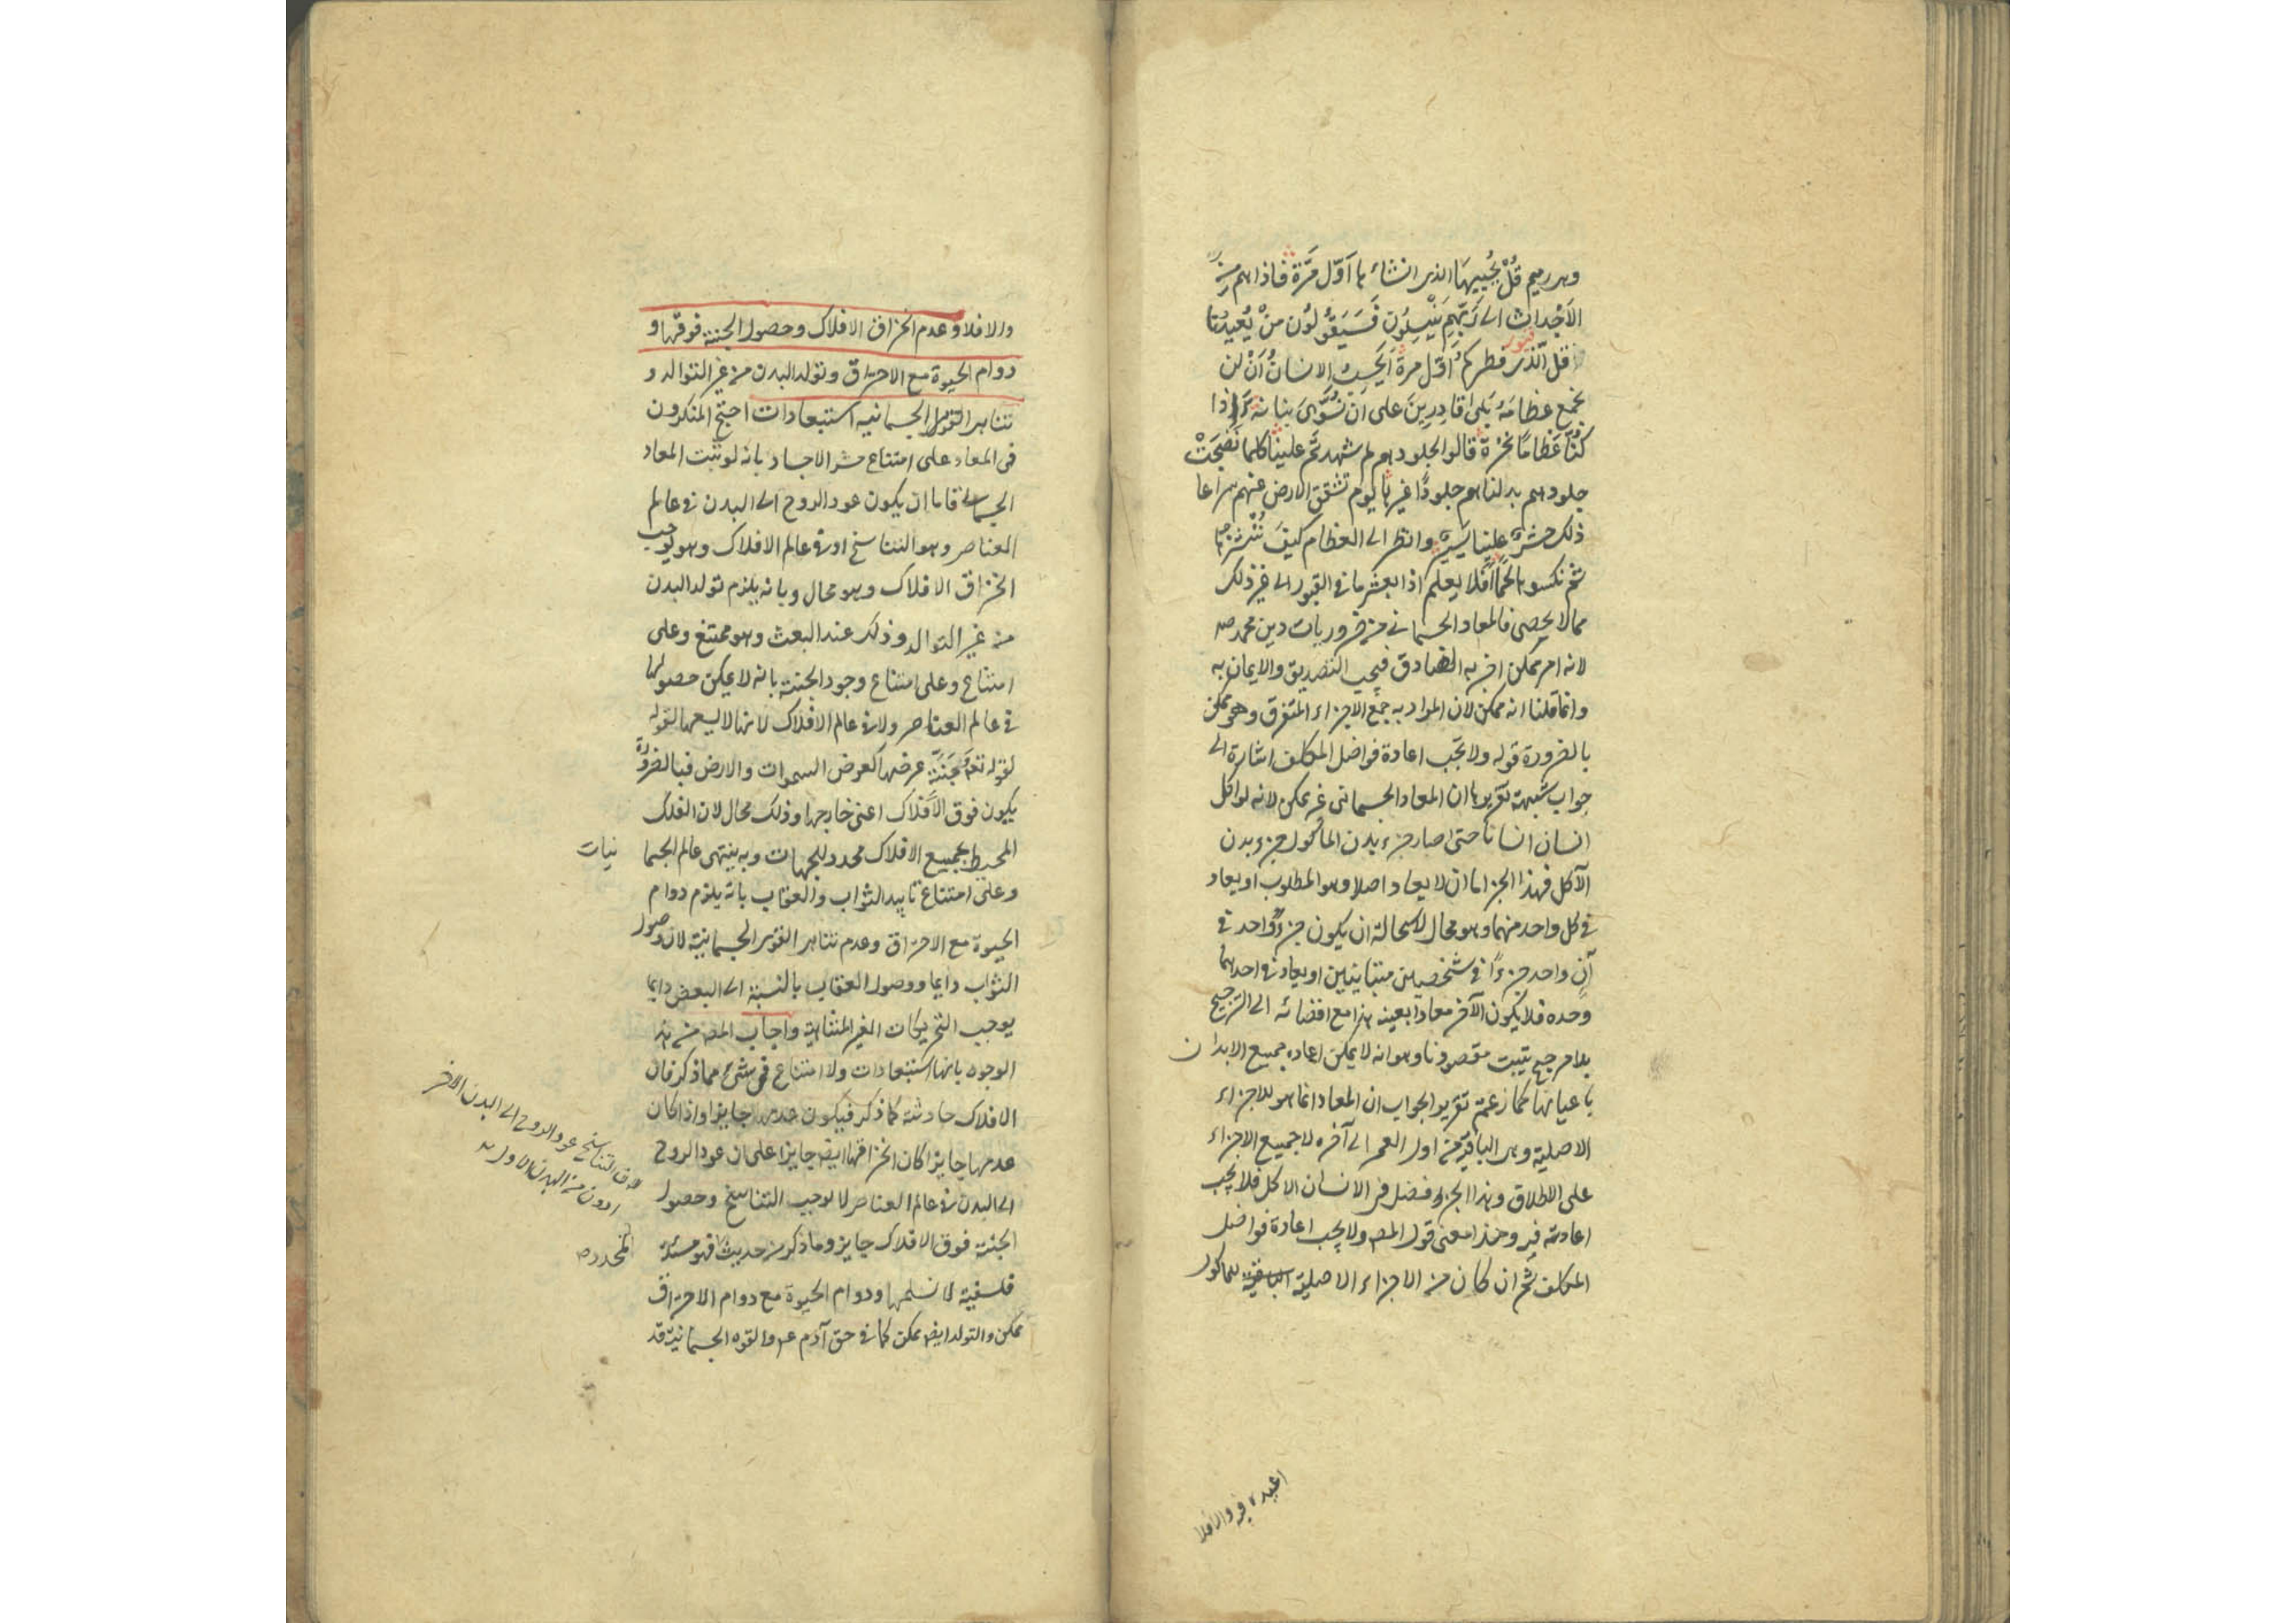 وهى رميم قُلْ يُحْييهَا الذى انشاءها اَوّل مَرَّة فاذا هم من
الاَجْداث الى رَبِّهِم يَنْسِلُون فَسَيَقُولُون مَنْ يُعيدُنا
قل الّذى فطركم اَوّل مرة اَيَحْسِبُ الانسانُ اَنْ لن
نجمع عظامَهُ بَلى قادِرِينَ على اَنْ نُسَوِّىَ بنانه ءَاِذا
كُنّا عظامًا نخرة قالوا لجلودهم لم شهدتّم علينا كلما نَضِجَتْ
جلودهم بدلناهم جلودًا غيرها يوم تشقق الارض عنهم سراعا
ذلك حشر علينا يسير وانظر الى العظام كيفَ نُنْشزها
ثم نكسوها لحمًا اَفَلا يعلم اذا بعثر ما فى القبور الى غير ذلك
مما لا يحصى فالمعاد الجسمانى من ضروريات دين محمد صم
لانه امر ممكن اخبر به الصادق فيجب التصديق والايمان به
وانما قلنا انه ممكن لان المراد به جمع الاجزاء المتفرق وهو ممكن
بالضرورة قوله ولا يَجب اعادة فواضل المكلف اشارة الى
جواب شبهة تقريرها ان المعاد الجسمانى غير ممكن لانه لو اكل
انسان انسانا حتى صار جزء بدن الماكول جزء بدن
الآكل فهذا الجزء اما ان لا يعاد اصلا وهو المطلوب او يعاد
فى كل واحد منهما وهو محال لاستحالة ان يكون جزءٌ واحد فى
آنٍ واحد جزءًا فى شخصين متباينين او يعاد فى احدهما
وحده فلا يكون الآخر معادا بعينه هذا مع افضائه الى الترجيح
بلا مرجح يثبت مقصودنا وهو انه لا يمكن اعاده جميع الابدان
باعيانها كما زعمتم تقرير الجواب ان المعاد انما هو للاجزاء
الاصلية وهى الباقية من اول العمر الى آخره لا جميع الاجزاء
على الاطلاق وهذا الجزء فضل فى الانسان الاكل فلا يجب
اعادته فيه وهذا معنى قول المص ولا يجب اعادة فواضل
المكلف ثم ان كان من الاجزاء الاصلية للماكول
اعيد فيه والافلا
والافلا وعدم انخراق الافلاك وحصول الجنة فوقها و
دوام الحيوة مع الاحتراق وتولد البدن من غير التوالد و
تناهى القوى الجسمانيه استبعادات احتج المنكرون
فى المعاد على امتناع حشر الاجساد بانه لو ثبت المعاد
الجسمانى فاما ان يكون عود الروح الى البدن فى عالم
العناصر وهو التناسخ او فى عالم الافلاك وهو يوجب
انخراق الافلاك وهو محال وبانه يلزم تولد البدن
من غير التوالد وذلك عند البعث وهو ممتنع وعلى
امتناع وعلى امتناع وجود الجنة بانه لا يمكن حصولها
فى عالم العناصر ولا فى عالم الافلاك لانها لا يسعها لقوله
لقوله تعـ جَنَّة عرضها كعرض السموات والارض فبالضرورة
يكون فوق الاَفلاك اعنى خارجها وذلك محال لان الفلك
المحيط بجميع الافلاك محدد للجهات وبه ينتهى عالم الجسمانيات
وعلى امتناع تابيد الثواب والعقاب بانه يلزم دوام
الحيوة مع الاحتراق وعدم تناهى القوى الجسمانية لان وصول
الثواب دايما ووصول العقاب بالنسبة الى البعض دايما
يوجب التحريكات الغير المتناهية واجاب المص من هذه
الوجوه بانها استبعادات ولا امتناع فى شىء مما ذكر فان
الافلاك حادثة كما ذكر فيكون عدمها جايزا واذا كان
عدمها جايزا كان انخراقها ايضـ جايزا على ان عود الروح
الى البدن فى عالم العناصر لا يوجب التناسخ وحصول
الجنة فوق الافلاك جايز وما ذكر من حديث المحدد فهو مسئلة
فلسفية لا نسلمها ودوام الحيوة مع دوام الاحتراق
ممكن والتولد ايضـ ممكن كما فى حق آدم عم والقوه الجسمانية قد
التناسخ عود الروح الى البدن الاخر
دون من البدن الاول